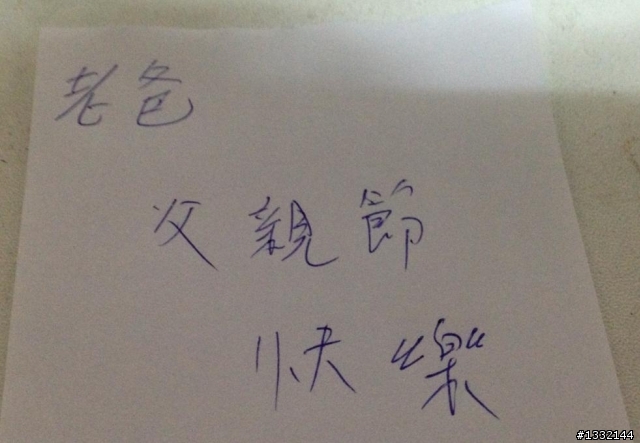 老爸
父親節
快樂
#1332144